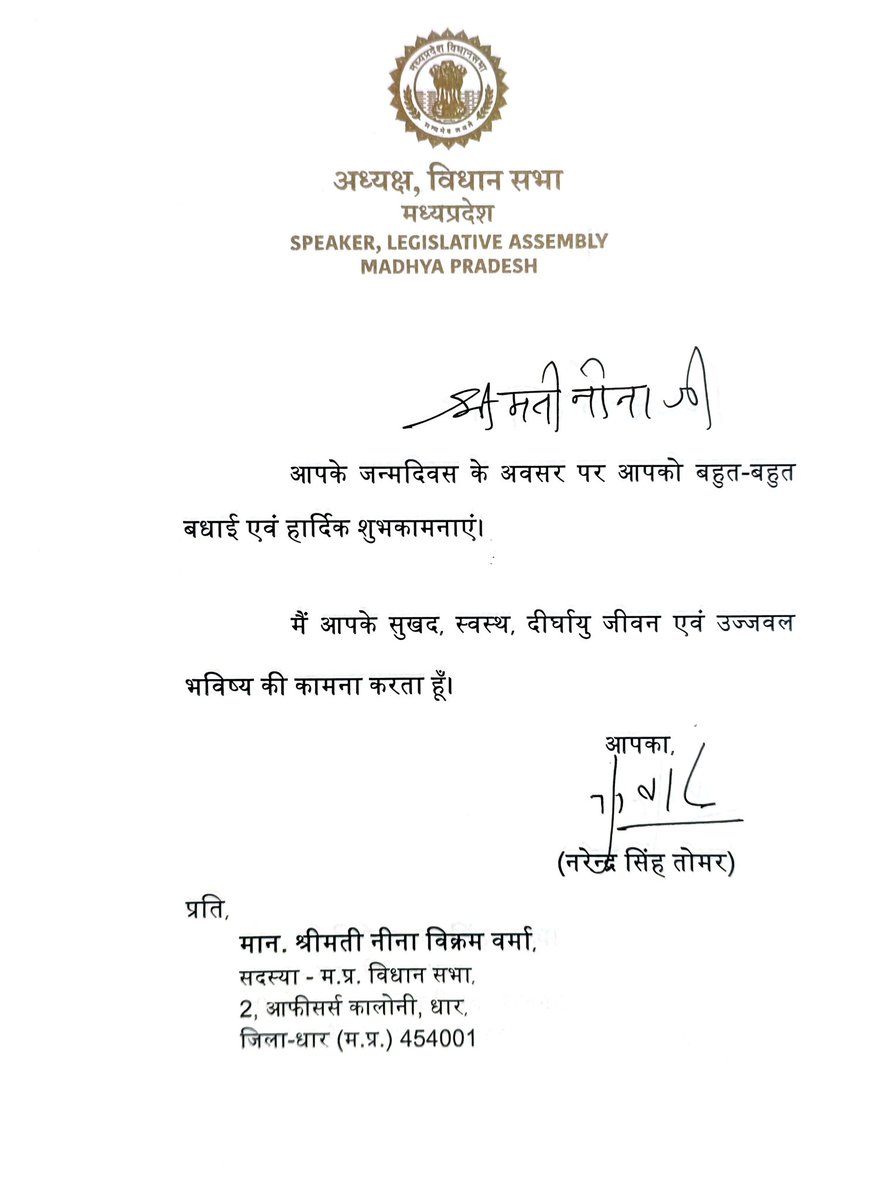 मध्यप्रदेश विधानसभा
सत्यमेव जयते
अध्यक्ष, विधान सभा
मध्यप्रदेश
SPEAKER, LEGISLATIVE ASSEMBLY
MADHYA PRADESH
श्रीमती नीना जी
आपके जन्मदिवस के अवसर पर आपको बहुत-बहुत
बधाई एवं हार्दिक शुभकामनाएं।
मैं आपके सुखद, स्वस्थ, दीर्घायु जीवन एवं उज्जवल
भविष्य की कामना करता हूँ।
आपका,
(नरेन्द्र सिंह तोमर)
प्रति,
मान. श्रीमती नीना विक्रम वर्मा,
सदस्या - म.प्र. विधान सभा,
2, आफीसर्स कालोनी, धार,
जिला-धार (म.प्र.) 454001